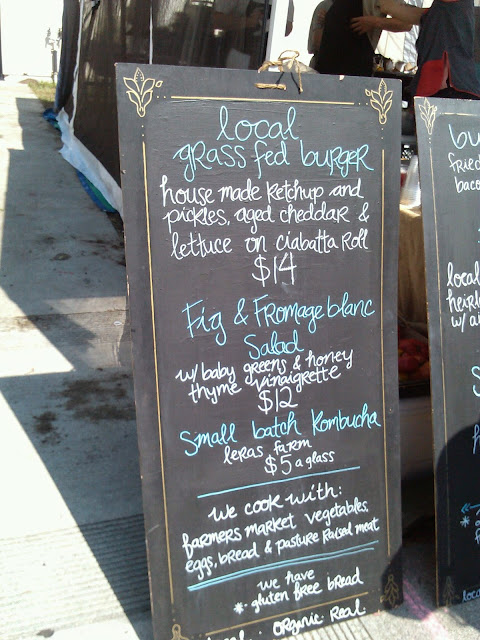 local
grass fed burger
house made ketchup and
pickles, aged cheddar &
lettuce on ciabatta Roll
$14
Fig & Fromage blanc
Salad
w/ baby greens & honey
thyme vinaigrette
$12
Small batch Kombucha
leras farm
$5 a glass
we cook with:
farmers market vegetables,
eggs, bread & pasture Raised meat
we have
* gluten free bread
local. Organic. Real.
bu
fried
baco
local
heirl
w/ ai
$